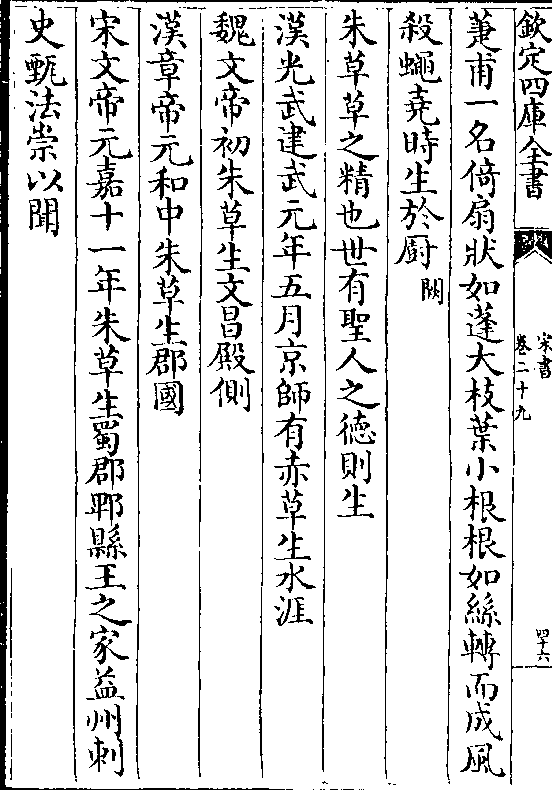 欽定四庫全書
宋書
卷二十九
四十六
萐甫一名倚扇狀如蓬大枝葉小根根如絲轉而成風
殺蠅堯時生於厨闕
朱草草之精也世有聖人之德則生
漢光武建武元年五月京師有赤草生水涯
魏文帝初朱草生文昌殿側
漢章帝元和中朱草生郡國
宋文帝元嘉十一年朱草生蜀郡郫縣王之家益州刺
史甄法崇以聞